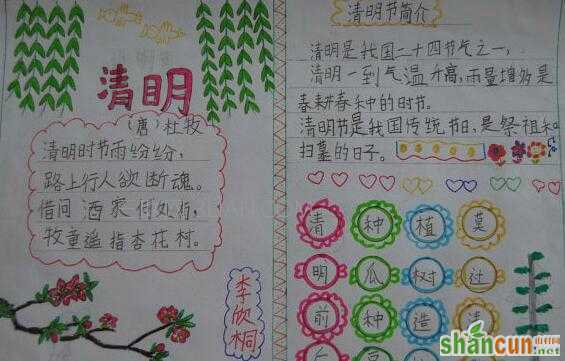 清明
(唐)杜牧
清明时节雨纷纷,
路上行人欲断魂。
借问酒家何处有,
牧童遥指杏花村。
李欣桐
清明节简介
清明是我国二十四节气之一,
清明一到气温升高,雨量增多是
春耕春种的时节。
清明节是我国传统节日,是祭祖和
扫墓的日子。
清 种 植 莫
明 瓜 树 过
前 种 造 清
shancun
.net